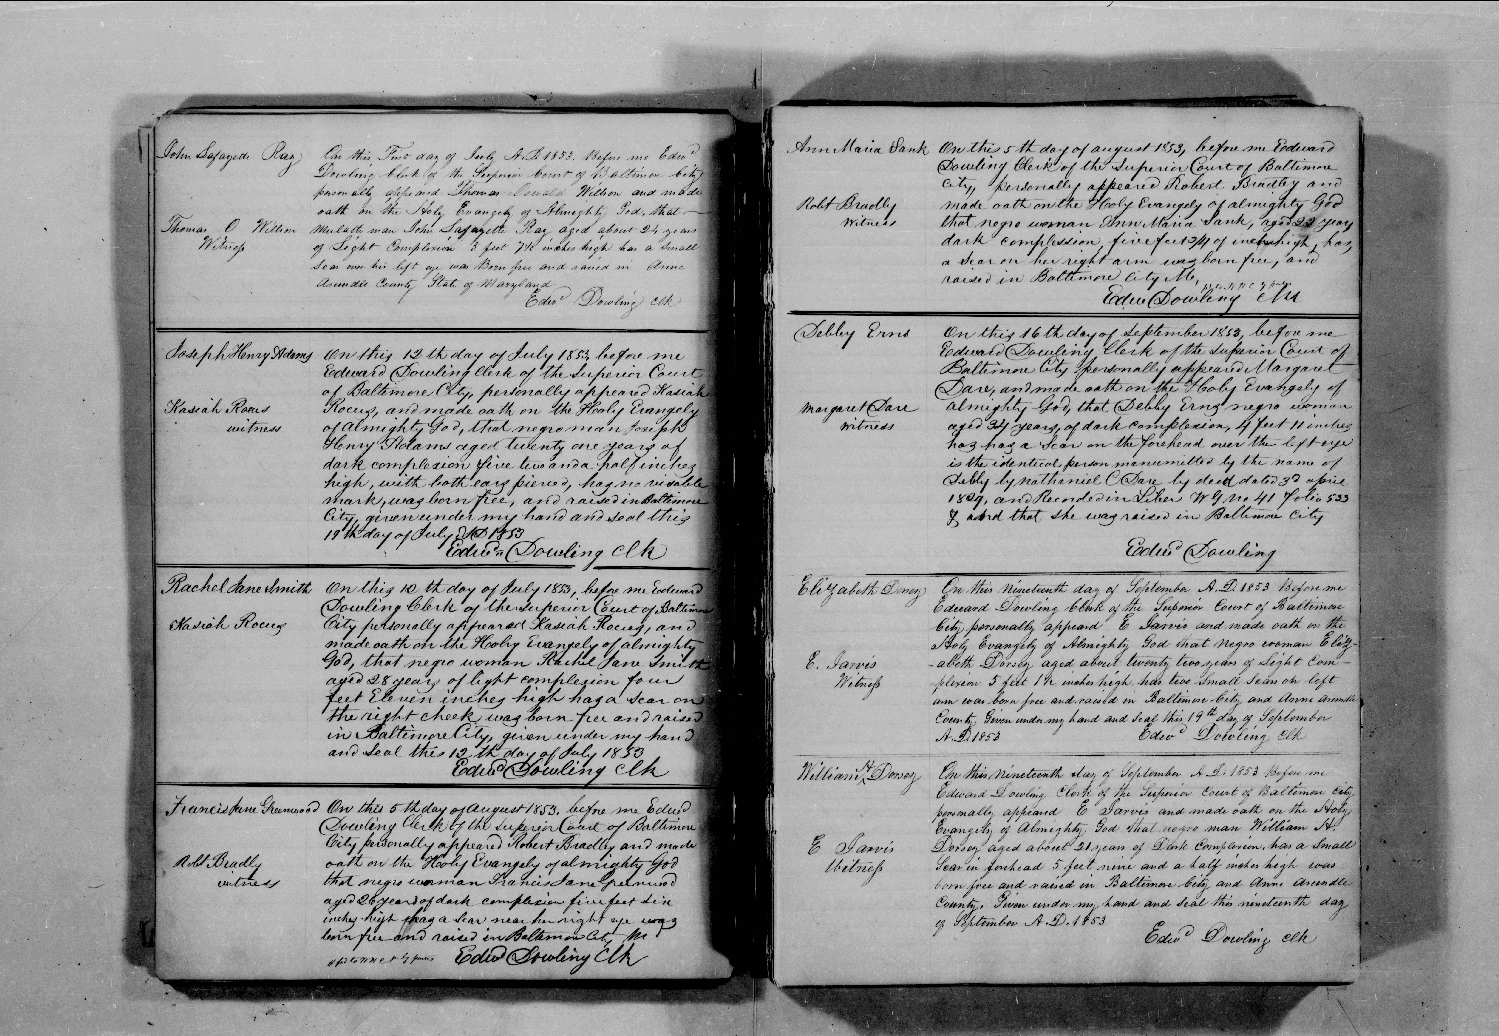 John Lafayette Ray
Thomas O Willson
Witness
On this First day of July A.D. 1853. Before me Edwd
Dowling Clerk of the Superior Court of Baltimore City
personally appeard Thomas Willson and made
oath on the Holy Evangely of Almighty God, that
Mulatto man John Lafayette Ray aged about 24 years
of Light Complexion 5 feet 7½ inches high has a small
Scar over his left eye was Born free and raised in Anne
Arundle County State of Maryland
Edwd Dowling Clk
Joseph Henry Adams
Kasiah Rocus
witness
On this 12th day of July 1853, before me
Edward Dowling Clerk of the Superior Court
of Baltimore City, personally appeared Kasiah
Rocus, and made oath on the Hooly Evangely
of Almighty God, that negro man Joseph
Henry Adams aged twenty one years of
dark complexion five two and a half inches
high, with both ears pierced, has no visable
mark, was born free, and raised in Baltimore
City, given under my hand and seal this
19th day of July AD 1853
Edwd Dowling Clk
Rachel Jane Smith
Kasiah Rocus
On this 12th day of July 1853, before me Eodward
Dowling Clerk of the Superior Court of Baltimore
City personally appeared Kasiah Rocus, and
made oath on the Hooly Evangely of almighty
God, that negro woman Rachel Jane Smith
aged 28 years of light complexion four
feet Eleven inches high has a Scar on
the right cheek was born free and raised
in Baltimore City, given under my hand
and seal this 12th day of July 1853
Edwd Dowling Clk
Francis Jane Greenwood
Robt Bradly
witness
On this 5th day of August 1853. before me Edwd
Dowling Clerk of the Superior Court of Baltimore
City personally appeared Robert Bradley and made
oath on the Hooly Evangely of almighty God
that negro woman Francis Jane Greenwood
aged 26 years of dark complexion five feet six
inches high has a scar near her right eye was
born free and raised in Baltimore City Md
Edwd Dowling Clk
Ann Maria Sank
Robt Bradly
Witness
On this 5th day of august 1853, before me Eodward
Dowling Clerk of the Superior Court of Baltimore
City, personally appeared Robert Bradley and
made oath on the Hooly Evangely of almighty God
that negro woman Ann Maria Sank, aged 22 years
dark complession, five feet 3/4 of inches high, has,
a scar on her right arm was born free, and
raised in Baltimore City Md,
Edwd Dowling Clk
Debby Erns
Margaret Dare
witness
On this 16th day of September 1853, before me
Edward Dowling Clerk of the Superior Court of
Baltimore City personally appeared Margaret
Dare, and made oath on the Hooly Evangely of
almighty God, that Debby Erns negro woman
aged 34 years, of dark complexion, 4 feet 11 inches
has has a scar on the forehead over the left eye
is the identical person manumitted by the name of
Debby by nathaniel C Dare by deed dated 3d aprie
1829, and Recorded in Liber W G no 41 folio 533
& and that she was raised in Baltimore City
Edwd Dowling
Elizabeth Dorsey
E. Jarvis
Witness
On this nineteenth day of September A.D. 1853 Before me
Edward Dowling Clerk of the Superior Court of Baltimore
City personally appeard E Jarvis and made oath on the
Holy Evangely of Almighty God that negro woman Eliz-
-abeth Dorsey aged about twenty two years of Light com-
plexion 5 feet 1½ inches high has two small Scars on left
arm was born free and raised in Baltimore City and Anne Arundle
County. Given under my hand and seal this 19th day of September
A.D. 1853
Edwd Dowling Clk
William H Dorsey
E Jarvis
Witness
On this Nineteenth day of September A.D. 1853 Before me
Edward Dowling Clerk of the Superior Court of Baltimore city
personally appeard E Jarvis and made oath on the Holy
Evangely of Almighty God that negro man William H.
Dorsey aged about 21 years of Dark Complexion, has a Small
Scar in forehead 5 feet nine and a half inches high was
born free and raised in Baltimore City and Anne Arundle
County. Given under my hand and seal this nineteenth day
of September A.D. 1853
Edwd Dowling clk